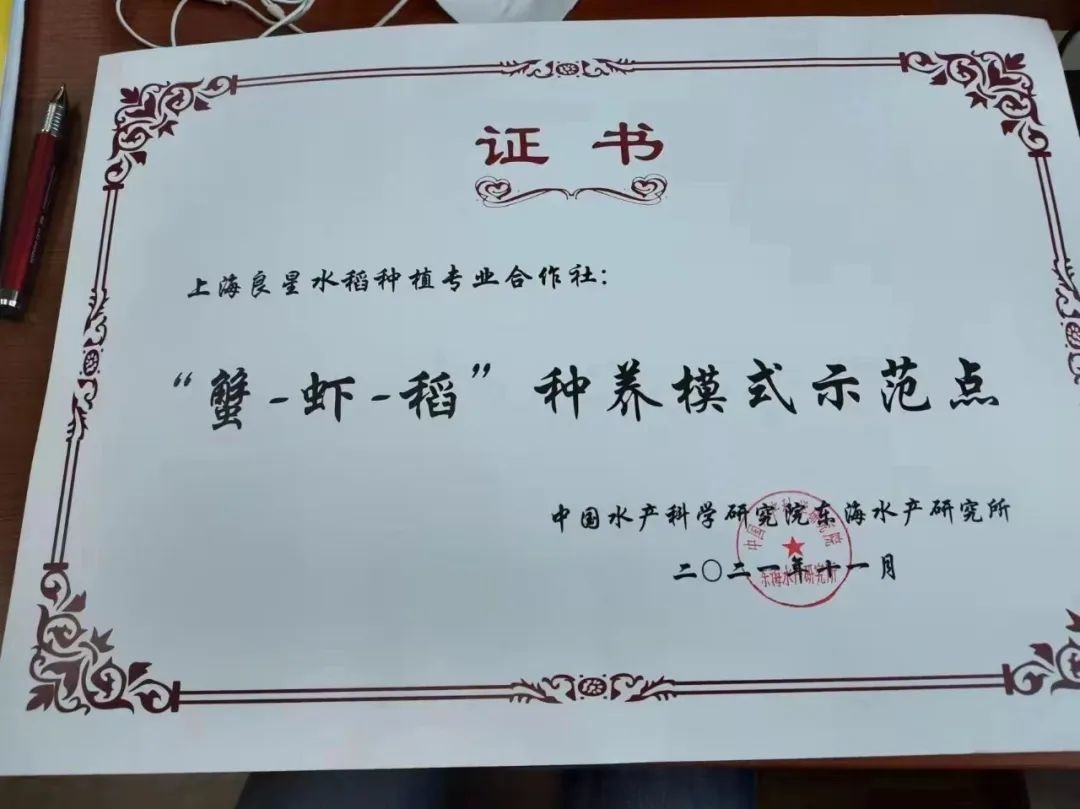 证书
上海良星水稻种植专业合作社：
“蟹-虾-稻”种养模式示范点
中国水产科学研究院东海水产研究所
二〇二一年十一月
东海水产研究所